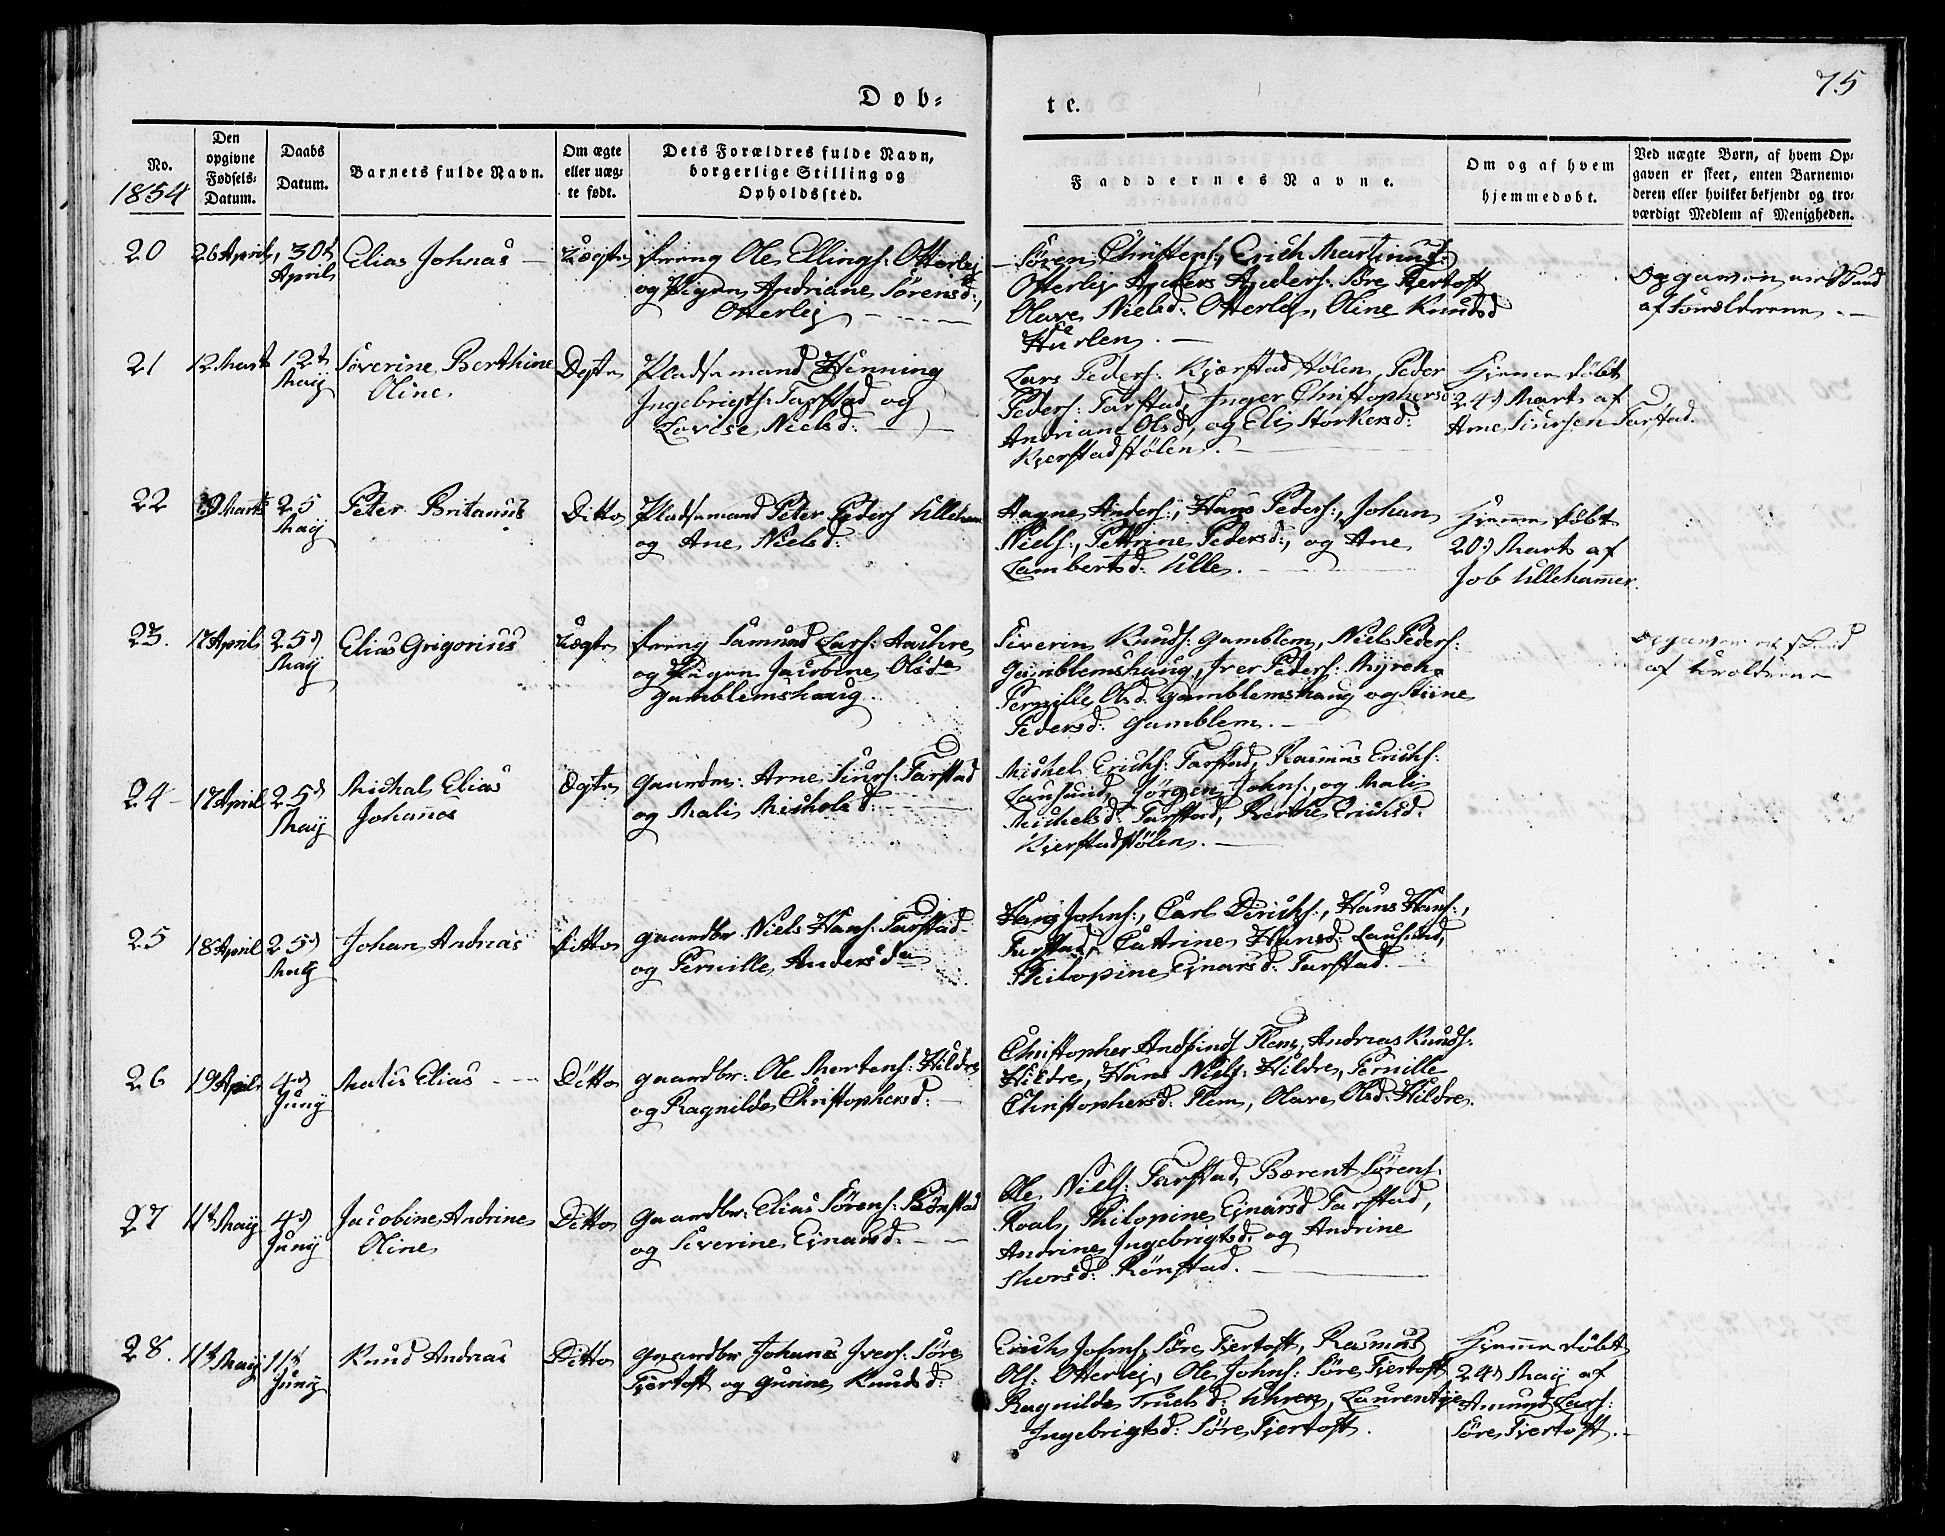 75
Døb-
te.
No.
1854
Den
opgivne
Fødsels-
Datum.
Daabs
Datum.
Barnets fulde Navn.
Om ægte
eller uæg-
te født.
Dets Forældres fulde Navn,
borgerlige Stilling og
Opholdssted.
Faddernes Navne.
Om og af hvem
hjemmedøbt.
Ved uægte Børn, af hvem Op-
gaven er skeet, enten Barnemo-
deren eller hvilket bekjendt og tro-
værdigt Medlem af Menigheden.
20
26 April
30t
April
Elias Johnas
Uægte
Ole Ellings: Otterlej
og Pigen Andriane Sørensd:,
Otterlej
Søren Christens:, Erich Martinus
Otterlej Anders Anders: Søre Fjertoft
Olave Nielsd: Otterlej, Oline Knudsd
Hurlen.
Opgaven er
af Forældrene
21
12 Marts
12t
Maij
Severine Berthine
Oline
Ægte
Pladsemand Henning
Ingebrigts: Farstad og
Lovise Nielsd:
Lars Peders: Kjærstad Hølen, Peder
Peders: Farstad, Inger Christophersd
Andriane Olsd, og Eli Storkersd:
Kjerstadstølen.
Hjemme døbt
24d Marts af
Arne Siursen Farstad.
22
Marts
25
Maij
Peter Britanus
Ditto
Pladsemand Peter Peders Ullehamr
og Ane Nielsd:
Hagne Anders:, Hans Peders:, Johan
Niels:, Pettrine Pedersd:, og Ane
Lambertsd: Ulle.
Hjemme døbt
20d Marts af
Job Ullehamer.
23.
17 April
25d
Maij
Elias Grigorius
Uægte
Samund Lars:
og Pigen Jacobine Olsd
Gamblemshaug
Siverin Knuds: Gamblem, Niels Peders:
Gamblemshaug, Iver Peders: Myren
Pernille Olsd: Gamblemshaug og Stiine
Pedersd: Gamblem.
Opgaven er
af Forældrene
24
17 April
25d
Maij
Michal Elias
Johannes
Ægte
Gaardm: Arne Siurs: Farstad
og Mali Michelsd:
Michel Erichs: Farstad, Rasmus Erichs:
Lausund, Jørgen Johns:, og Mali
Michelsd: Farstad, Berthe Erichsd:
Kjerstadstølen.
25
18 April
25d
Maij
Johan Andreas
Ditto
Gaardbr Niels Hans: Farstad
og Pernille Andersd
Johns:, Carl Dirichs:, Hans Hans:,
Farstad, Cattrine Hansd: Lausund,
Philopine Ejnarsd: Farstad.
26
19 April
4d
Junij
Matis Elias
Ditto
Gaardbr: Ole Mortens: Hildre
og Ragnilde Christophersd:
Christopher Flem, Andreas Knuds:
Hildre, Hans Niels: Hildre, Pernille
Christophersd: Flem, Olave Olsd: Hildre.
27
11t Maij
4d
Junij
Jacobine Andrine
Oline
Ditto
Gaardbr: Elias Sørens: Rønstad
og Siverine Ejnarsd:
Ole Niels: Farstad, Bærent Sørens:
Roal, Philopine Ejnarsd Farstad,
Andrine Ingebrigtsd: og Andrine
Rønstad.
28.
11t Maij
11t
Junij
Knud Andreas
Ditto
Gaardbr Johanes Ivers: Søre
Fjertoft og Gurine Knudsd:
Erich Johns: Søre Fjertoft, Rasmus
Ols: Otterlej, Ole Johns: Søre Fjertoft
Ragnilde Truelsd: Uhren, Laurentze
Ingebrigtsd: Søre Fjertoft.
Hjemme døbt
24d Maij af
Amund Lars:
Søre Fjertoft.